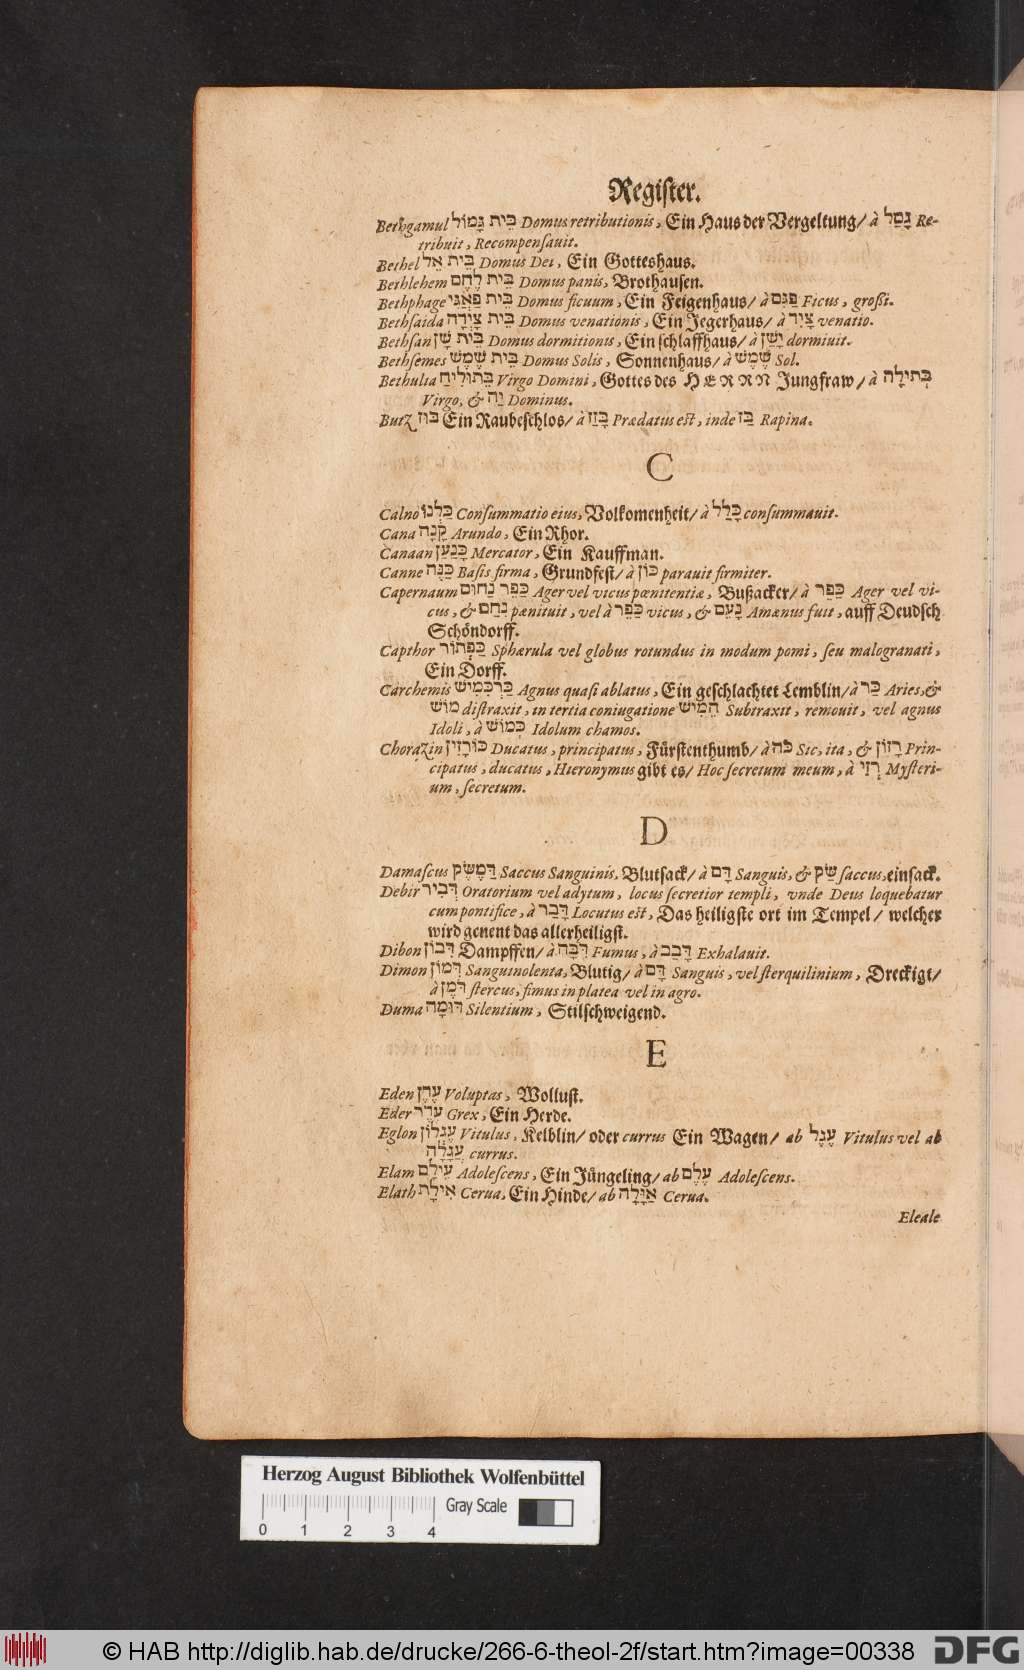 Regiſter.
Bethgamul בֵּית גָּמוּל Domus retributionis, Ein Haus der Vergeltung/ à גָּמַל Re-
tribuit, Recompenſavit.
Bethel בֵּית אֵל Domus Dei, Ein Gotteshaus.
Bethlehem בֵּית לֶחֶם Domus panis, Brothauſen.
Bethphage בֵּית פַּאגֵּי Domus ficuum, Ein Feigenhaus/ à Ficus, groſſi.
Bethſaida בֵּית צָיְדָה Domus venationis, Ein Jegerhaus/ à צָיִד venatio.
Bethſan בֵּית שָׁן Domus dormitionis, Ein ſchlaffhaus/ à יָשֵׁן dormiuit.
Bethſemes בֵּית שֶׁמֶשׁ Domus Solis, Sonnenhaus/ à שֶׁמֶשׁ Sol.
Bethulia Virgo Domini, Gottes des HERRN Jungfraw/ à
Virgo, & יָהּ Dominus.
Butz בוּז Ein Raubeſchlos/ à בָּזַז Prædatus eſt, inde בַּז Rapina.
C
Calno כַּלְנוֹ Conſummatio eius, Volkomenheit/ à כָּלַל conſummauit.
Cana קָנָה Arundo, Ein Rhor.
Canaan כְּנַעַן Mercator, Ein Kauffman.
Canne כַּנֶּה Baſis firma, Grundfeſt/ à כּוּן parauit firmiter.
Capernaum כְּפַר נַחוּם Ager vel vicus pœnitentiæ, Bußacker/ à כְּפַר Ager vel vi-
cus, & נָחַם pœnituit, vel à כְּפַר vicus, & נָעֵם Amænus fuit, auff Deudſch
Schöndorff.
Capthor כַּפְתּוֹר Sphærula vel globus rotundus in modum pomi, ſeu malogranati,
Ein Dorff.
Carchemis כַּרְכְּמִישׁ Agnus quaſi ablatus, Ein geſchlachtet Lemblin/ à כַּר Aries, &
מוּשׁ diſtraxit, in tertia coniugatione הֵמִישׁ Subtraxit, remouit, vel agnus
Idoli, à כְּמוֹשׁ Idolum chamos.
Chorazin כּוֹרָזִין Ducatus, principatus, Fürſtenthumb/ à כֹּה Sic, ita, & רָזוֹן Prin-
cipatus, ducatus, Hieronymus gibt es/ Hoc ſecretum meum, à רָזִי Myſteri-
um, ſecretum.
D
Damaſcus דַּמֶּשֶׂק Saccus Sanguinis, Blutſack/ à דָּם Sanguis, & שַׂק ſaccus, ein ſack.
Debir דְּבִיר Oratorium vel adytum, locus ſecretior templi, vnde Deus loquebatur
cum pontifice, à דָּבַר Locutus eſt, Das heiligſte ort im Tempel/ welcher
wird genent das allerheiligſt.
Dibon דִּבוֹן Dampffen/ à Fumus, à דָּבַב Exhalauit.
Dimon דִּמוֹן Sanguinolenta, Blutig/ à דָּם Sanguis, vel ſterquilinium, Dreckigt/
à דֹּמֶן ſtercus, fimus in platea vel in agro.
Duma דּוּמָה Silentium, Stilſchweigend.
E
Eden עֶדֶן Voluptas, Wolluſt.
Eder עֵדֶר Grex, Ein Herde.
Eglon עֶגְלוֹן Vitulus, Kelblin/ oder currus Ein Wagen/ ab עֶגֶל Vitulus vel ab
עֲגָלָה currus.
Elam עֵילָם Adoleſcens, Ein Jüngeling/ ab עֶלֶם Adoleſcens.
Elath אֵילַת Cerua, Ein Hinde/ ab אַיָּלָה Cerua.
Eleale
Herzog August Bibliothek Wolfenbüttel
Gray Scale
0 1 2 3 4
© HAB http://diglib.hab.de/drucke/266-6-theol-2f/start.htm?image=00338
DFG